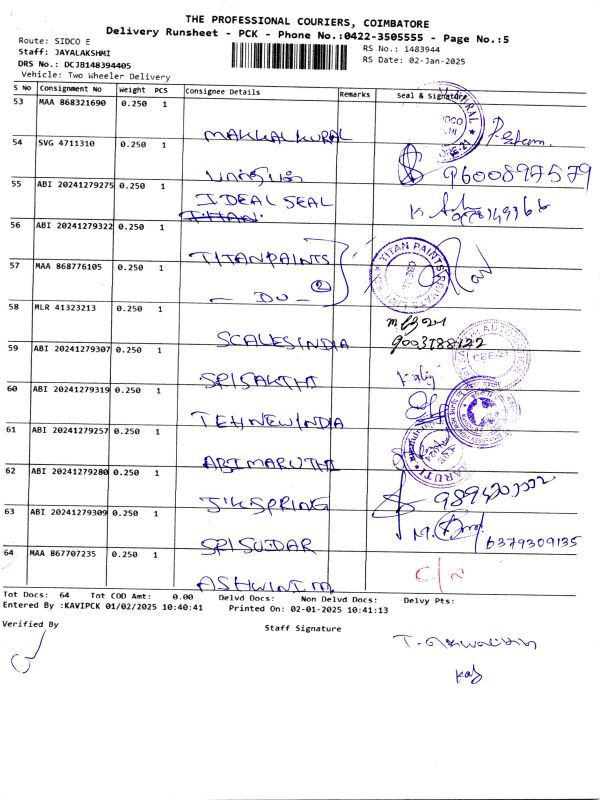 THE PROFESSIONAL COURIERS, COIMBATORE
Delivery Runsheet - PCK - Phone No.:0422-3505555 - Page No.:5
Route: SIDCO E
RS No.: 1483944
Staff: JAYALAKSHMI
RS Date: 02-Jan-2025
DRS No.: DCJB148394405
Vehicle: Two Wheeler Delivery
S No Consignment No Weight PCS Consignee Details Remarks Seal & Signature
53 MAA 868321690 0.250 1
MAKKAL KURAL
54 SVG 4711310 0.250 1
9600897579
55 ABI 20241279275 0.250 1 IDEAL SEAL
TITAN
56 ABI 20241279322 0.250 1
TITAN PAINTS
TITAN PAINTS
57 MAA 868776105 0.250 1
2
- DO -
58 MLR 41323213 0.250 1
SCALES INDIA
9003788122
59 ABI 20241279307 0.250 1
CBE-21
SRI SAKTHI
60 ABI 20241279319 0.250 1
TEH NEW INDIA
61 ABI 20241279257 0.250 1
ABI MARUTHI
62 ABI 20241279280 0.250 1
J.K SPRING
63 ABI 20241279309 0.250 1
6379309135
SRI SUDAR
64 MAA 867707235 0.250 1
C/N
ASHWINI M
Tot Docs: 64 Tot COD Amt: 0.00 Delvd Docs: Non Delvd Docs: Delvy Pts:
Entered By :KAVIPCK 01/02/2025 10:40:41 Printed On: 02-01-2025 10:41:13
Verified By
Staff Signature